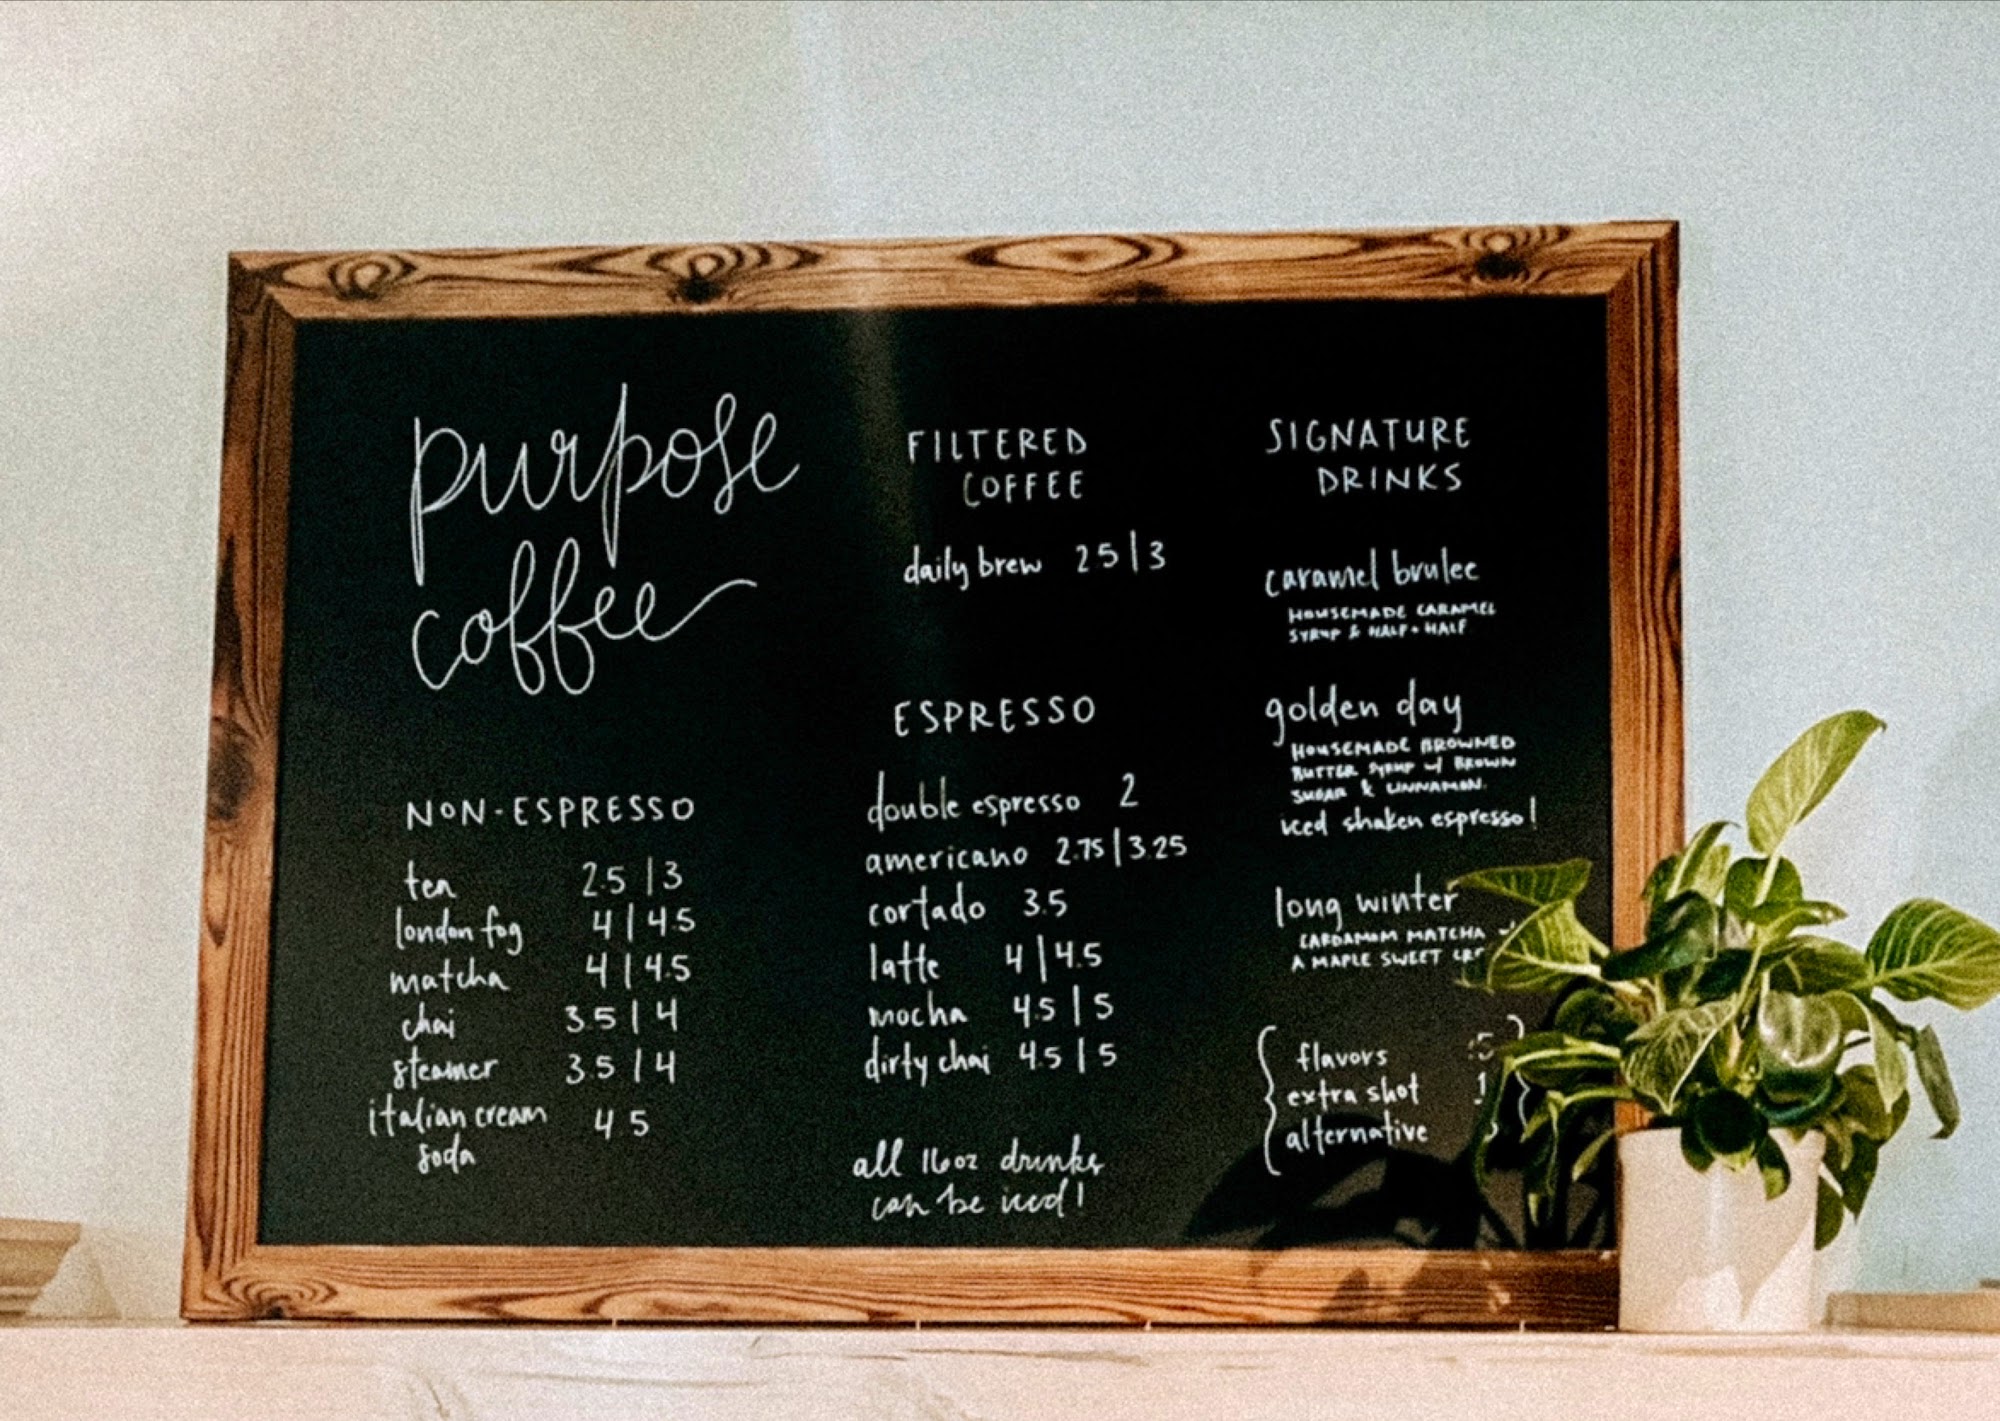 purpose
coffee
NON-ESPRESSO
tea 2.5 | 3
london fog 4 | 4.5
matcha 4 | 4.5
chai 3.5 | 4
steamer 3.5 | 4
italian cream 4.5
soda
FILTERED
COFFEE
daily brew 2.5 | 3
ESPRESSO
double espresso 2
americano 2.75 | 3.25
cortado 3.5
latte 4 | 4.5
mocha 4.5 | 5
dirty chai 4.5 | 5
all 16oz drinks
can be iced!
SIGNATURE
DRINKS
caramel brulee
HOUSEMADE CARAMEL
SYRUP & HALF + HALF
golden day
HOUSEMADE BROWNED
BUTTER SYRUP w/ BROWN
SUGAR & CINNAMON.
iced shaken espresso!
long winter
CARDAMOM MATCHA
A MAPLE SWEET
flavors .5
extra shot
alternative